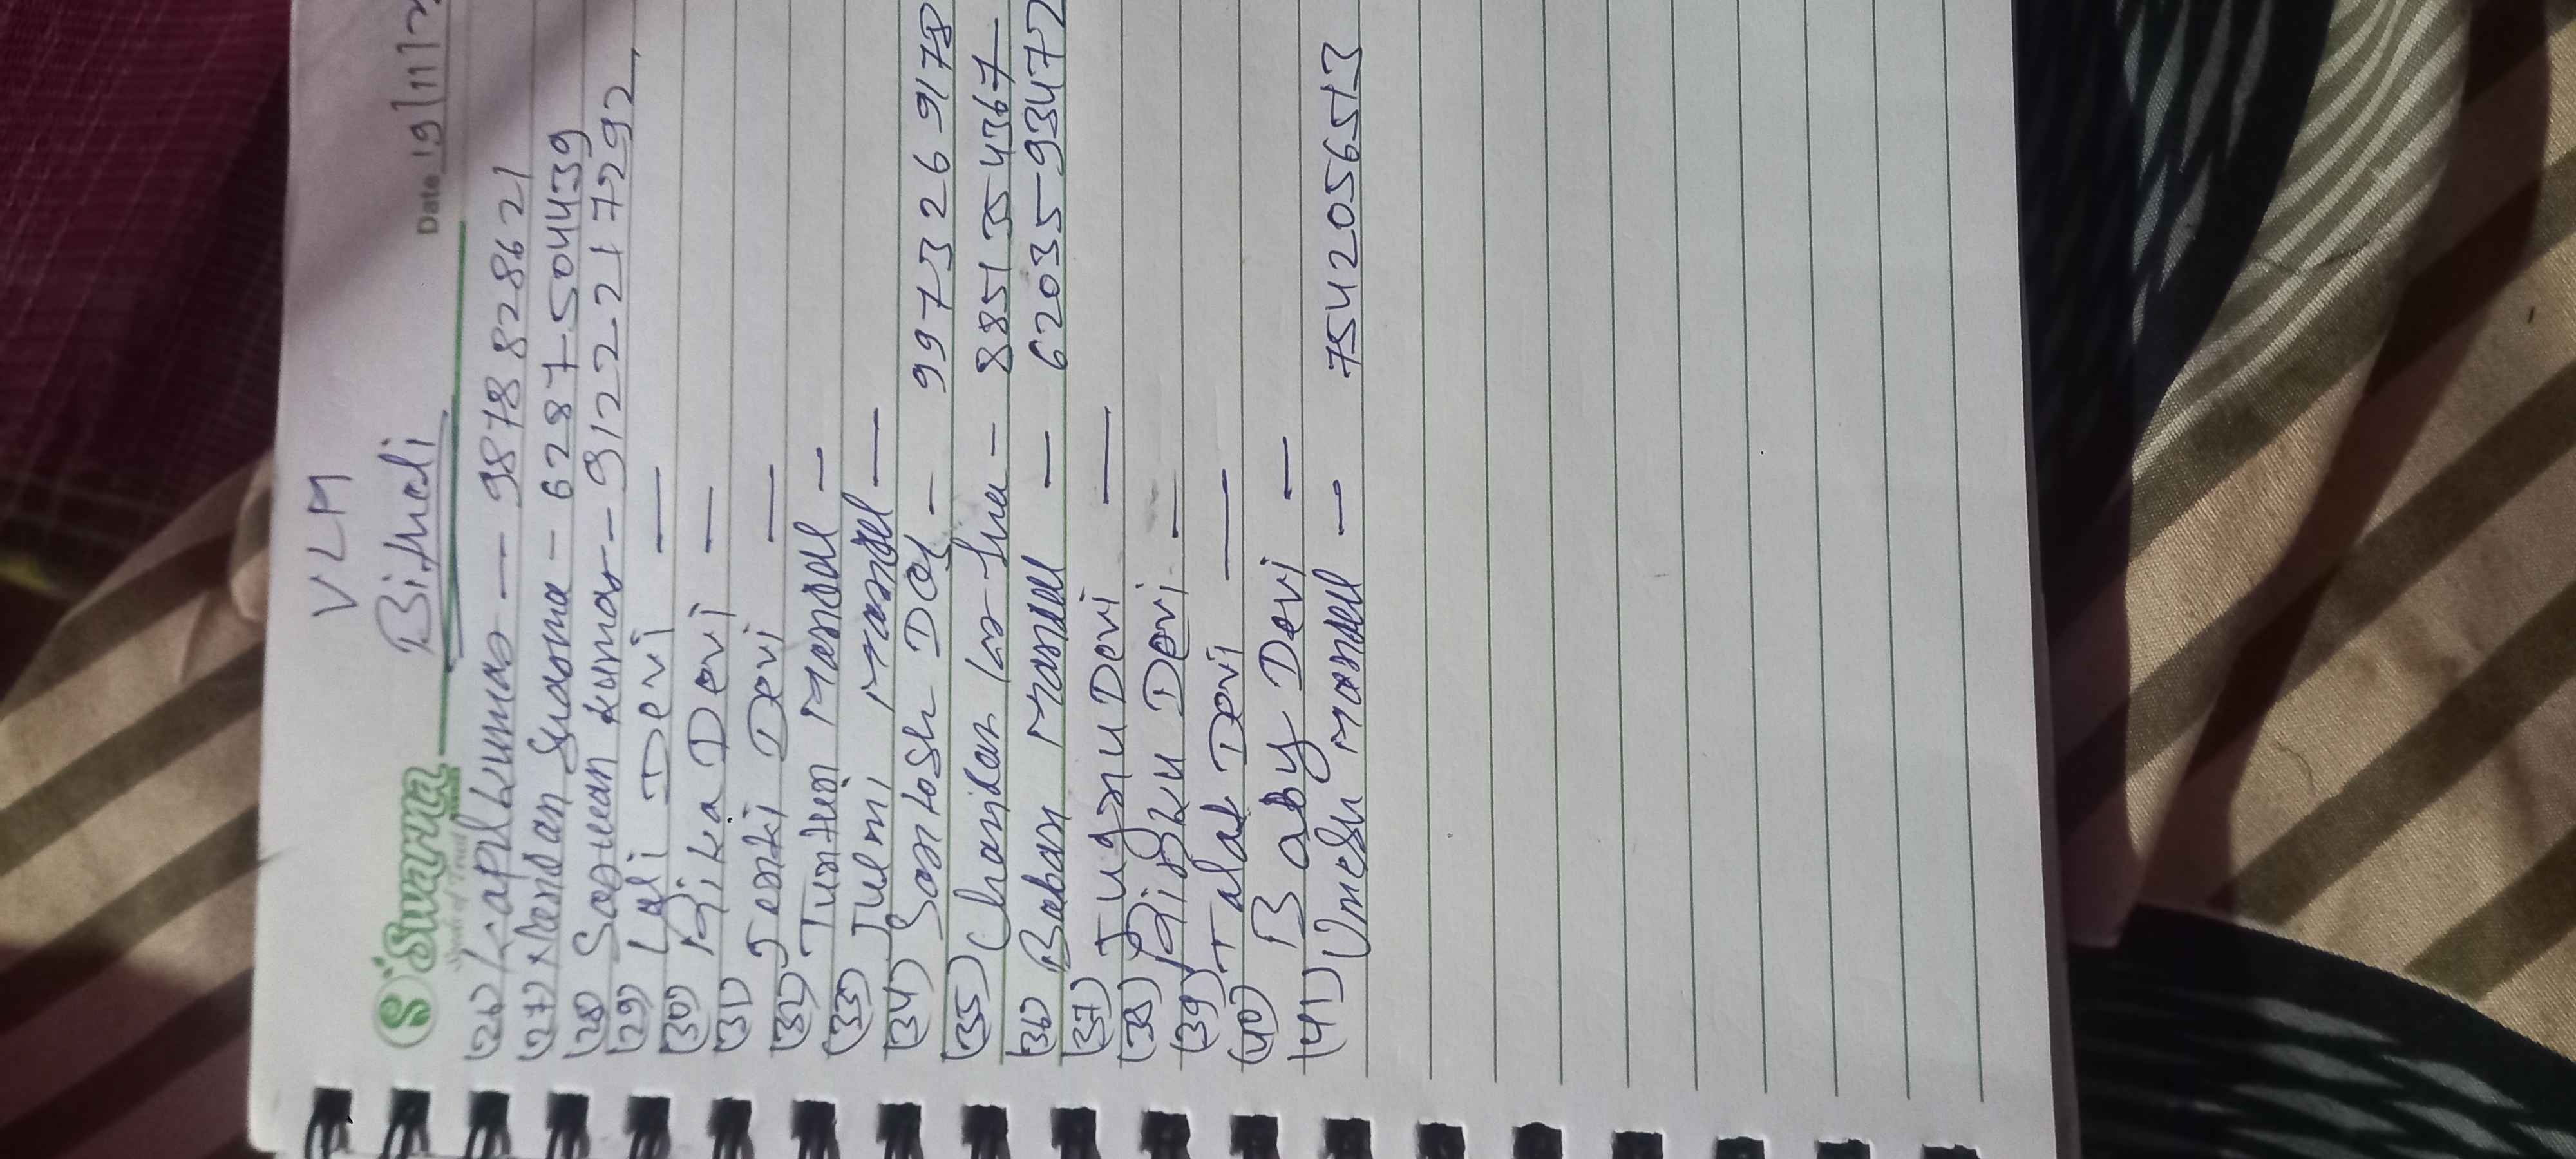 VLM
Date 19/11/2
Swarna
Bithali
(26) Kapil Kumar — 9878828621
(27) Nandan Sharma - 6287504439
(28) Sarwan Kumar - 9122217292
(29) Lali Devi —
(30) Rika Devi —
(31) Jenki Devi —
(32) Juntun Mandal —
(33) Julmi Mandal —
(34) Santosh Das - 9973269178
(35) Chandan - 8851354367
(36) Baban Mandal — 62035-93472
(37) Jugnu Devi —
(38) Rinku Devi —
(39) Talat Devi —
(40) Baby Devi —
(41) Umesh Mandal — 7542056513